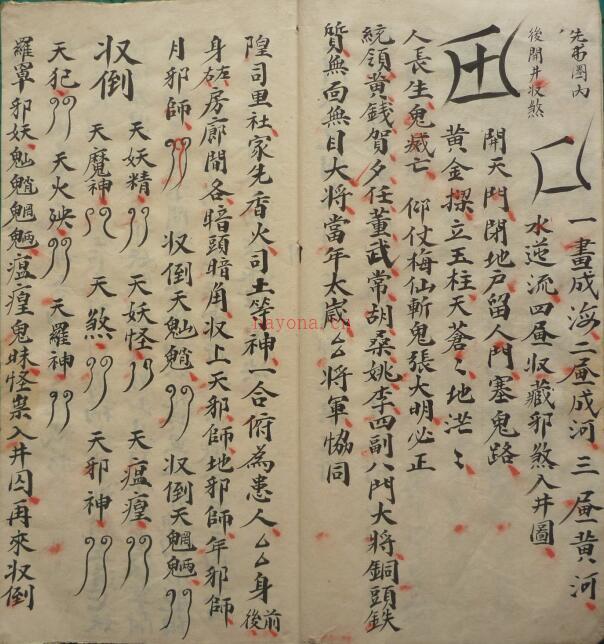 先畨圈內
後開井収煞
一畫成海二畫成河三畫黃河
水逆流四畫収藏邪煞入井圖
開天門閉地戶留人門塞鬼路
黃金撑立玉柱天蒼〻地茫〻
人長生鬼滅亡 仰仗梅仙斬鬼張大明必正
統領黃錢賀夕任董武常胡桑姚李四副八門大將銅頭鉄
質無面無目大將當年太歲厶厶將軍恊同
隍司里社家先香火司土等神一合俯為患人厶厶身前後
身左右房廊間各暗頭暗角収上天邪師地邪師年邪師
月邪師 収倒天魈䰡 収倒天魍魎
天妖精 天妖怪 天瘟㾮
収倒
天魔神 天煞 天邪神
天犯 天火殃 天羅神
羅罩邪妖魈䰡魍魎瘟㾮鬼昧怪案入井囚再來収倒
nayona.cn